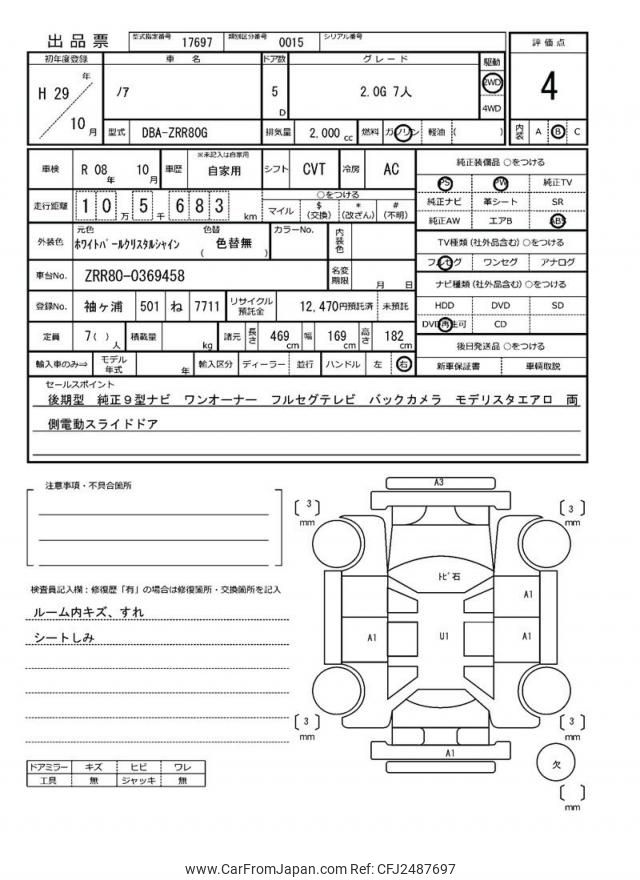 出品票 型式指定番号 17697 類別区分番号 0015 シリアル番号
初年度登録 車名 ドア数 グレード 駆動 評価点
H 29 年 10 月 ノア 5 D 2.0G 7人 2WD 4WD 4
型式 DBA-ZRR80G 排気量 2,000 cc 燃料 ガソリン 軽油 ( ) 内装 A B C
車検 R 08 年 10 月 車歴 ※未記入は自家用 自家用 シフト CVT 冷房 AC
走行距離 1 0 万 5 千 6 8 3 km
○をつける
マイル $ (交換) * (改ざん) # (不明)
外装色 元色 ホワイトパールクリスタルシャイン 色替 ( 色替無 ) カラーNo. 内装色
車台No. ZRR80-0369458 名変期限 月 日
登録No. 袖ヶ浦 501 ね 7711 リサイクル預託金 12,470円預託済 未預託
定員 7( ) 人 積載量 kg 諸元 長さ 469 cm 幅 169 cm 高さ 182 cm
輸入車のみ⇨ モデル年式 年 輸入区分 ディーラー 並行 ハンドル 左 右
純正装備品 ○をつける
PS PW 純正TV
純正ナビ 革シート SR
純正AW エアB ABS
TV種類 (社外品含む) ○をつける
フルセグ ワンセグ アナログ
ナビ種類 (社外品含む) ○をつける
HDD DVD SD
DVD再生可 CD
後日発送品 ○をつける
新車保証書 車輌取説
セールスポイント
後期型 純正9型ナビ ワンオーナー フルセグテレビ バックカメラ モデリスタエアロ 両
側電動スライドドア
注意事項・不具合箇所
検査員記入欄：修復歴「有」の場合は修復箇所・交換箇所を記入
ルーム内キズ、すれ
シートしみ
ドアミラー キズ ヒビ ワレ
工具 無 ジャッキ 無
A3
[ 3 ] mm
[ 3 ] mm
トビ石
A1
A1 U1 A1
[ 3 ] mm
[ 3 ] mm
A1
欠
[ ] mm
www.CarFromJapan.com Ref: CFJ2487697